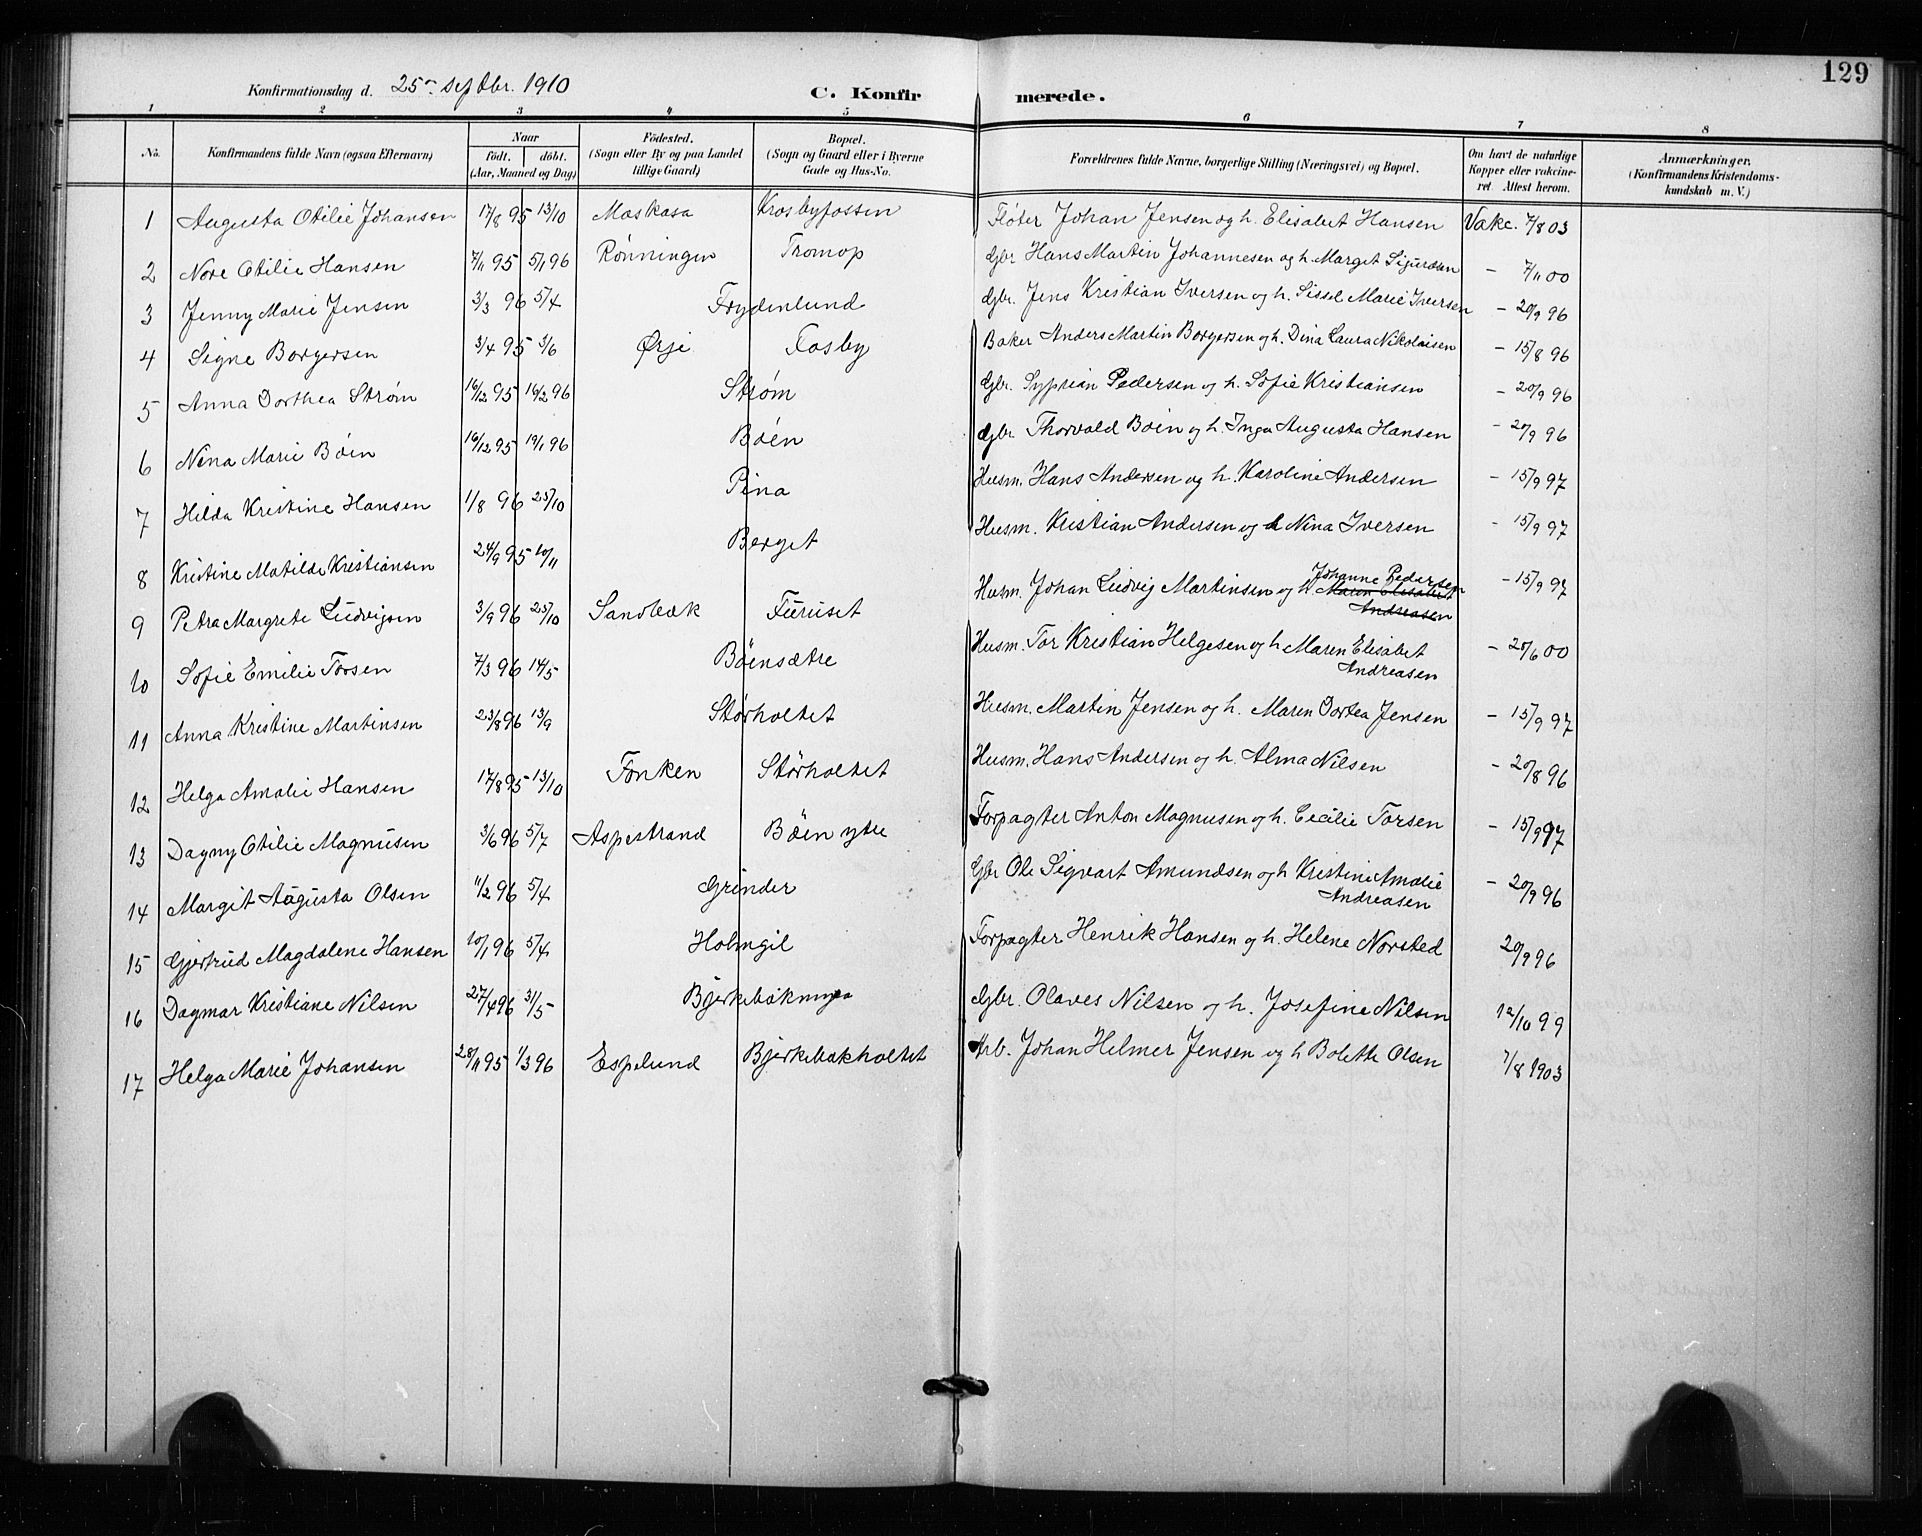 129
Konfirmationsdag d. 25 septbr. 1910 C. Konfirmerede.
1 2 3 4 5 6 7 8
No. Konfirmandens fulde Navn (ogsaa Efternavn) Naar födt. döbt. (Aar, Maaned og Dag) Födested. (Sogn eller By og paa Landet tillige Gaard) Bopæl. (Sogn og Gaard eller i Byerne Gade og Hus-No. Forældrenes fulde Navne, borgerlige Stilling (Næringsvei) og Bopæl. Om havt de naturlige Kopper eller vakcineret. Attest herom. Anmærkninger. (Konfirmandens Kristendomskundskab m. V.)
1 Augusta Otilie Johansen 17/8 95 13/10 Moskasa Krosbyfossen Fløter Johan Jensen og h. Elisabet Hansen Vakc. 7/8 03
2 Nore Otilie Hansen 7/11 95 5/1 96 Rønningen Tromop Gbr Hans Martin Johannesen og h. Marget Sigurdsen - 7/11 00
3 Jenny Marie Jensen 3/3 96 5/4 Frydenlund Gbr. Jens Kristian Iversen og h. Sissel Marie Iversen - 20/9 96
4 Signe Borgersen 3/4 95 3/6 Ørje Fosby Baker Anders Martin Borgersen og h. Dina Laura Nikolaisen - 15/8 96
5 Anna Dorthea Strøm 16/12 95 16/2 96 Strøm Gbr. Syprian Pedersen og h. Sofie Kristiansen - 20/9 96
6 Nina Marie Böen 16/12 95 19/1 96 Böen Gbr Thorvald Böen og h. Inga Augusta Hansen - 20/9 96
7 Hilda Kristine Hansen 1/8 96 25/10 Pina Husm. Hans Andersen og h. Karoline Andersen - 15/9 97
8 Kristine Matilde Kristiansen 24/9 95 10/11 Berget Husm. Kristian Andersen og h Nina Iversen - 15/9 97
9 Petra Margrete Ludvigsen 3/9 96 25/10 Sandbæk Furuset Husm. Johan Ludvig Martinsen og h Johanne Pedersen Maren Elisabet Andreasen - 15/9 97
10 Sofie Emilie Torsen 7/3 96 14/5 Böensætre Husm. Tor Kristian Helgesen og h Maren Elisabet Andreasen - 20/6 00
11 Anna Kristine Martinsen 23/8 96 13/9 Störholtet Husm. Martin Jensen og h. Maren Dortea Jensen - 15/9 97
12 Helga Amalie Hansen 17/8 95 13/10 Fonken Störholtet Husm. Hans Andersen og h. Alma Nilsen - 20/8 96
13 Dagny Otilie Magnusen 3/6 96 5/7 Aspestrand Böen ytre Forpagter Anton Magnusen og h. Cecilie Torsen - 15/9 97
14 Margit Augusta Olsen 11/2 96 5/4 Grinder Gbr Ole Sigvart Amundsen og h Kristine Amalie Andreasen - 20/9 96
15 Gjertrud Magdalene Hansen 10/1 96 5/4 Holmgil Forpagter Henrik Hansen og h. Helene Norsted 20/9 96
16 Dagmar Kristiane Nilsen 27/4 96 31/5 Gbr. Olaves Nilsen og h. Josefine Nilsen 12/10 99
17 Helga Marie Johansen 28/11 95 1/3 96 Espelund Bjerkebækholtet Arb. Johan Helmer Jensen og h Bolette Olsen 7/8 1903